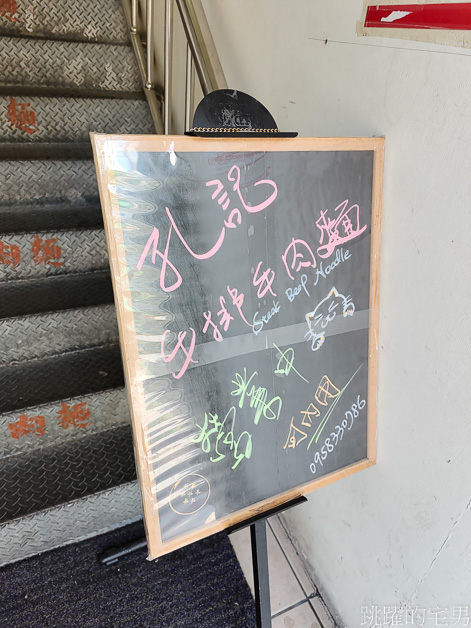 孔記
牛排牛肉麵
Steak Beef Noodle
營業中
可內用
0958330986
跳躍的宅男